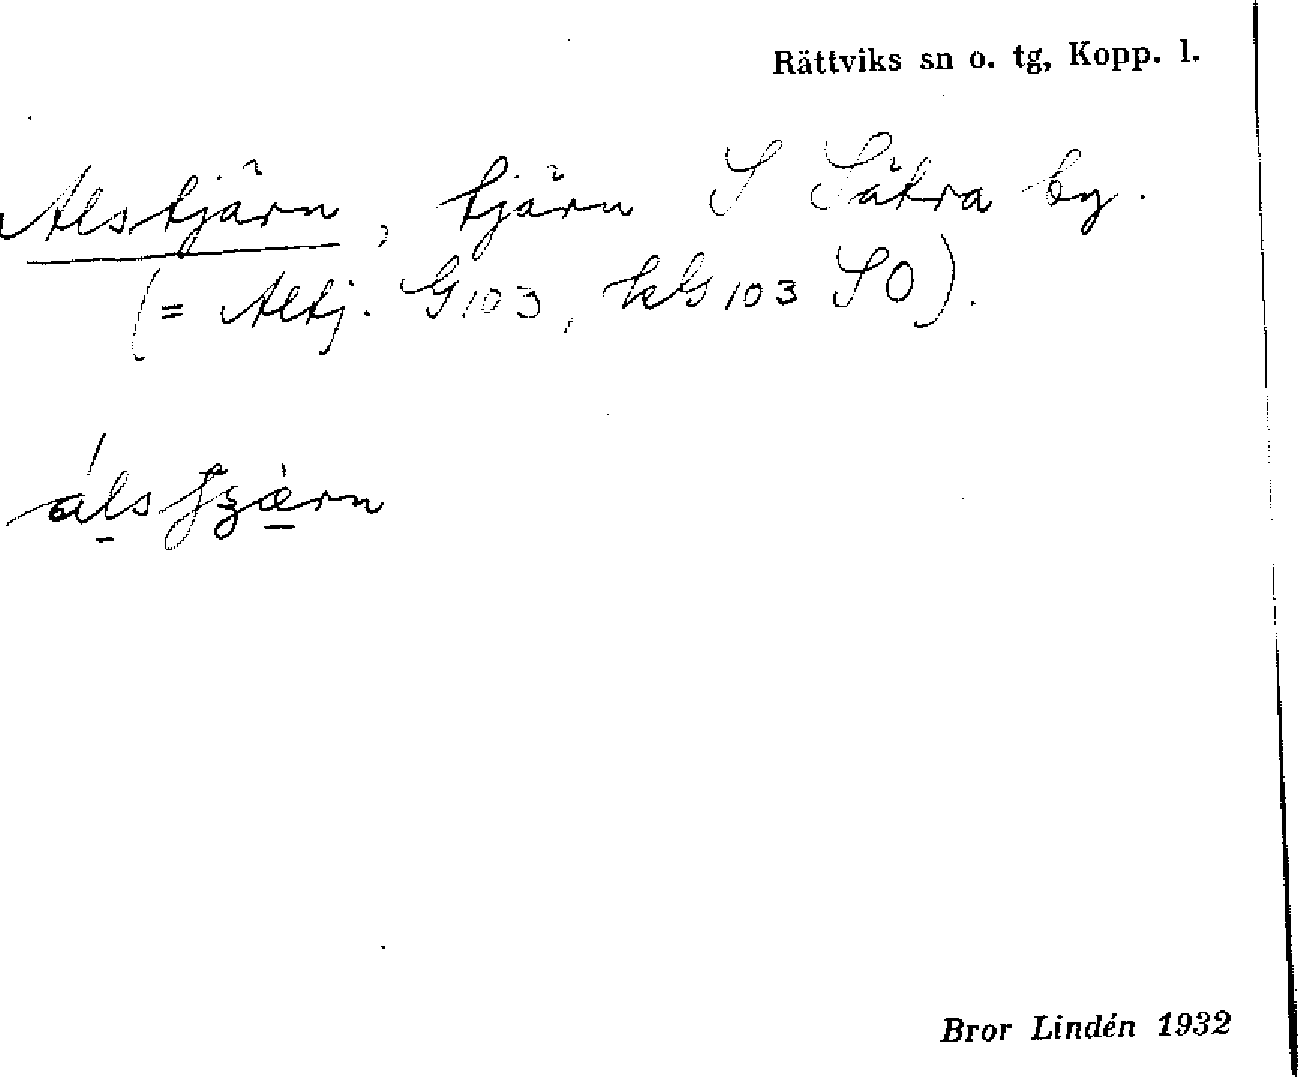 Rättviks sn o. tg, Kopp. l.
Alstjärn, tjärn S Sätra by.
(= Altj. G103, kG103 SO).
álsʈʒæ̀rn
Bror Lindén 1932